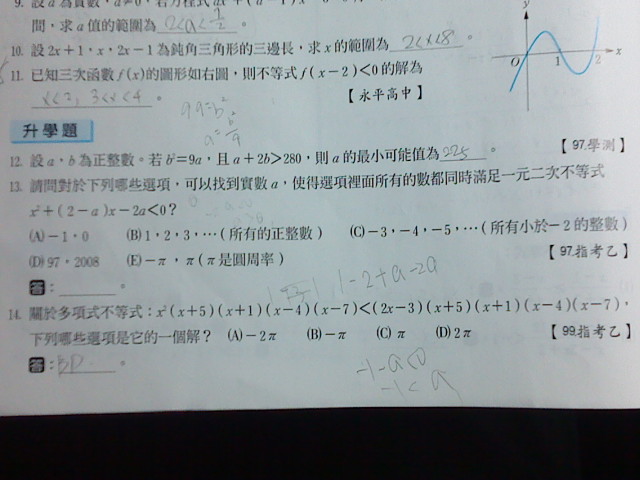 間,求a值的範圍為 2<a<
10. 設2x+1,x,2x-1為鈍角三角形的三邊長,求x的範圍為 2<x<8 。
11. 已知三次函數f(x)的圖形如右圖,則不等式f(x-2)<0的解為
3<x<4 。 【永平高中】
y
O 1 2 x
9a=b²
a=b²/9
升學題
12. 設a,b為正整數。若b²=9a,且a+2b>280,則a的最小可能值為 225 。 【97.學測】
13. 請問對於下列哪些選項,可以找到實數a,使得選項裡面所有的數都同時滿足一元二次不等式
x²+(2-a)x-2a<0?
(A)-1,0 (B)1,2,3,…(所有的正整數) (C)-3,-4,-5,…(所有小於-2的整數)
(D)97,2008 (E)-π,π(π是圓周率) 【97.指考乙】
答:
1-2+a-2a
14. 關於多項式不等式:x²(x+5)(x+1)(x-4)(x-7)<(2x-3)(x+5)(x+1)(x-4)(x-7),
下列哪些選項是它的一個解? (A)-2π (B)-π (C)π (D)2π 【99.指考乙】
答: BD 。
-1-a<0
-1<a